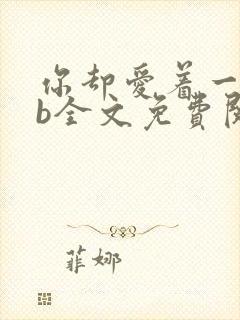 你却爱着一
b全文免費閱
菲娜